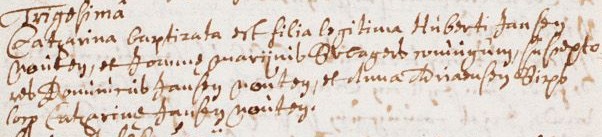 Trigesimâ
Catharina baptizata est filia legitima Huberti Jansen
Nouten, et Joannæ Marijnis Slagers coniugum, suscepto
res Dominicus Jansen Nouten, et Anna Adriaensen
loco Catharinæ Jansen Nouten.